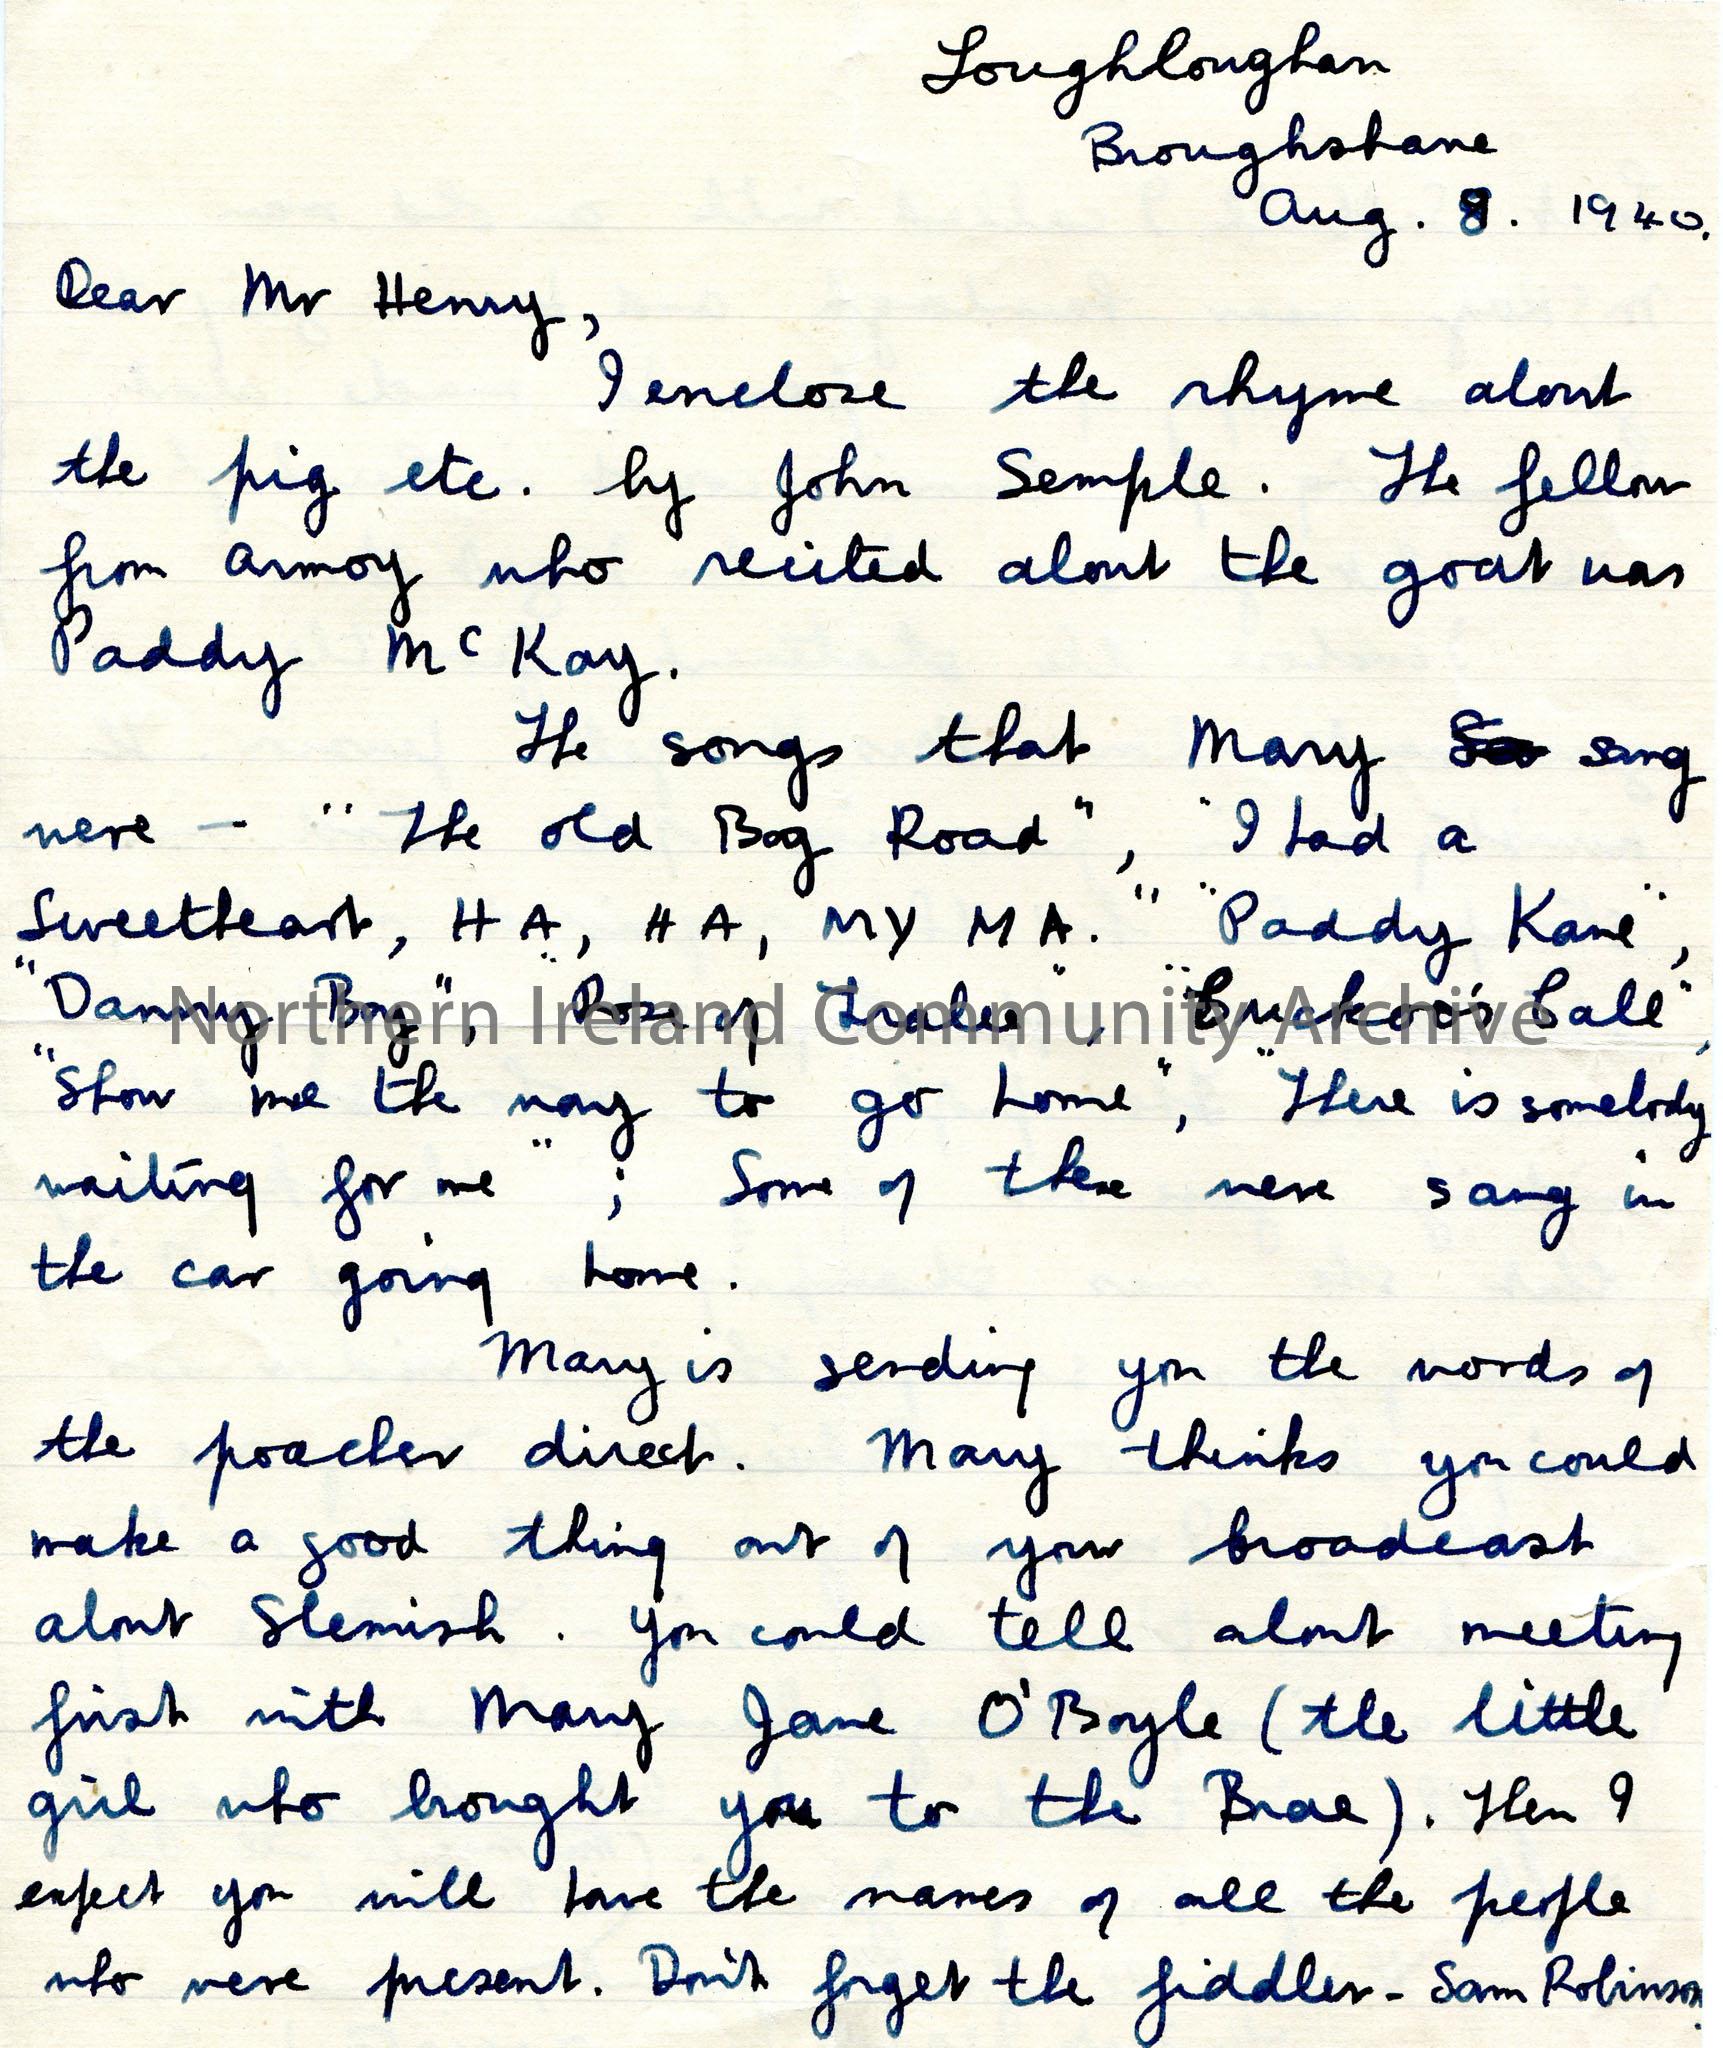 Loughloughan
Broughshane
Aug. 8. 1940.
Dear Mr Henry,
I enclose the rhyme about
the pig etc. by John Semple. The fellow
from Armoy who recited about the goat was
Paddy McKay.
The songs that Mary sang
were — "The old Bog Road", "I had a
Sweetheart, HA, HA, MY MA." "Paddy Kane",
"Danny Boy", "Rose of Tralee", "Cuckoo's Call",
"Show me the way to go home", "There is somebody
waiting for me"; Some of these were sang in
the car going home.
Mary is sending you the words of
the poacher direct. Mary thinks you could
make a good thing out of your broadcast
about Slemish. You could tell about meeting
first with Mary Jane O'Boyle (the little
girl who brought you to the Brae). Then I
expect you will have the names of all the people
who were present. Don't forget the fiddler - Sam Robinson.
Northern Ireland Community Archive